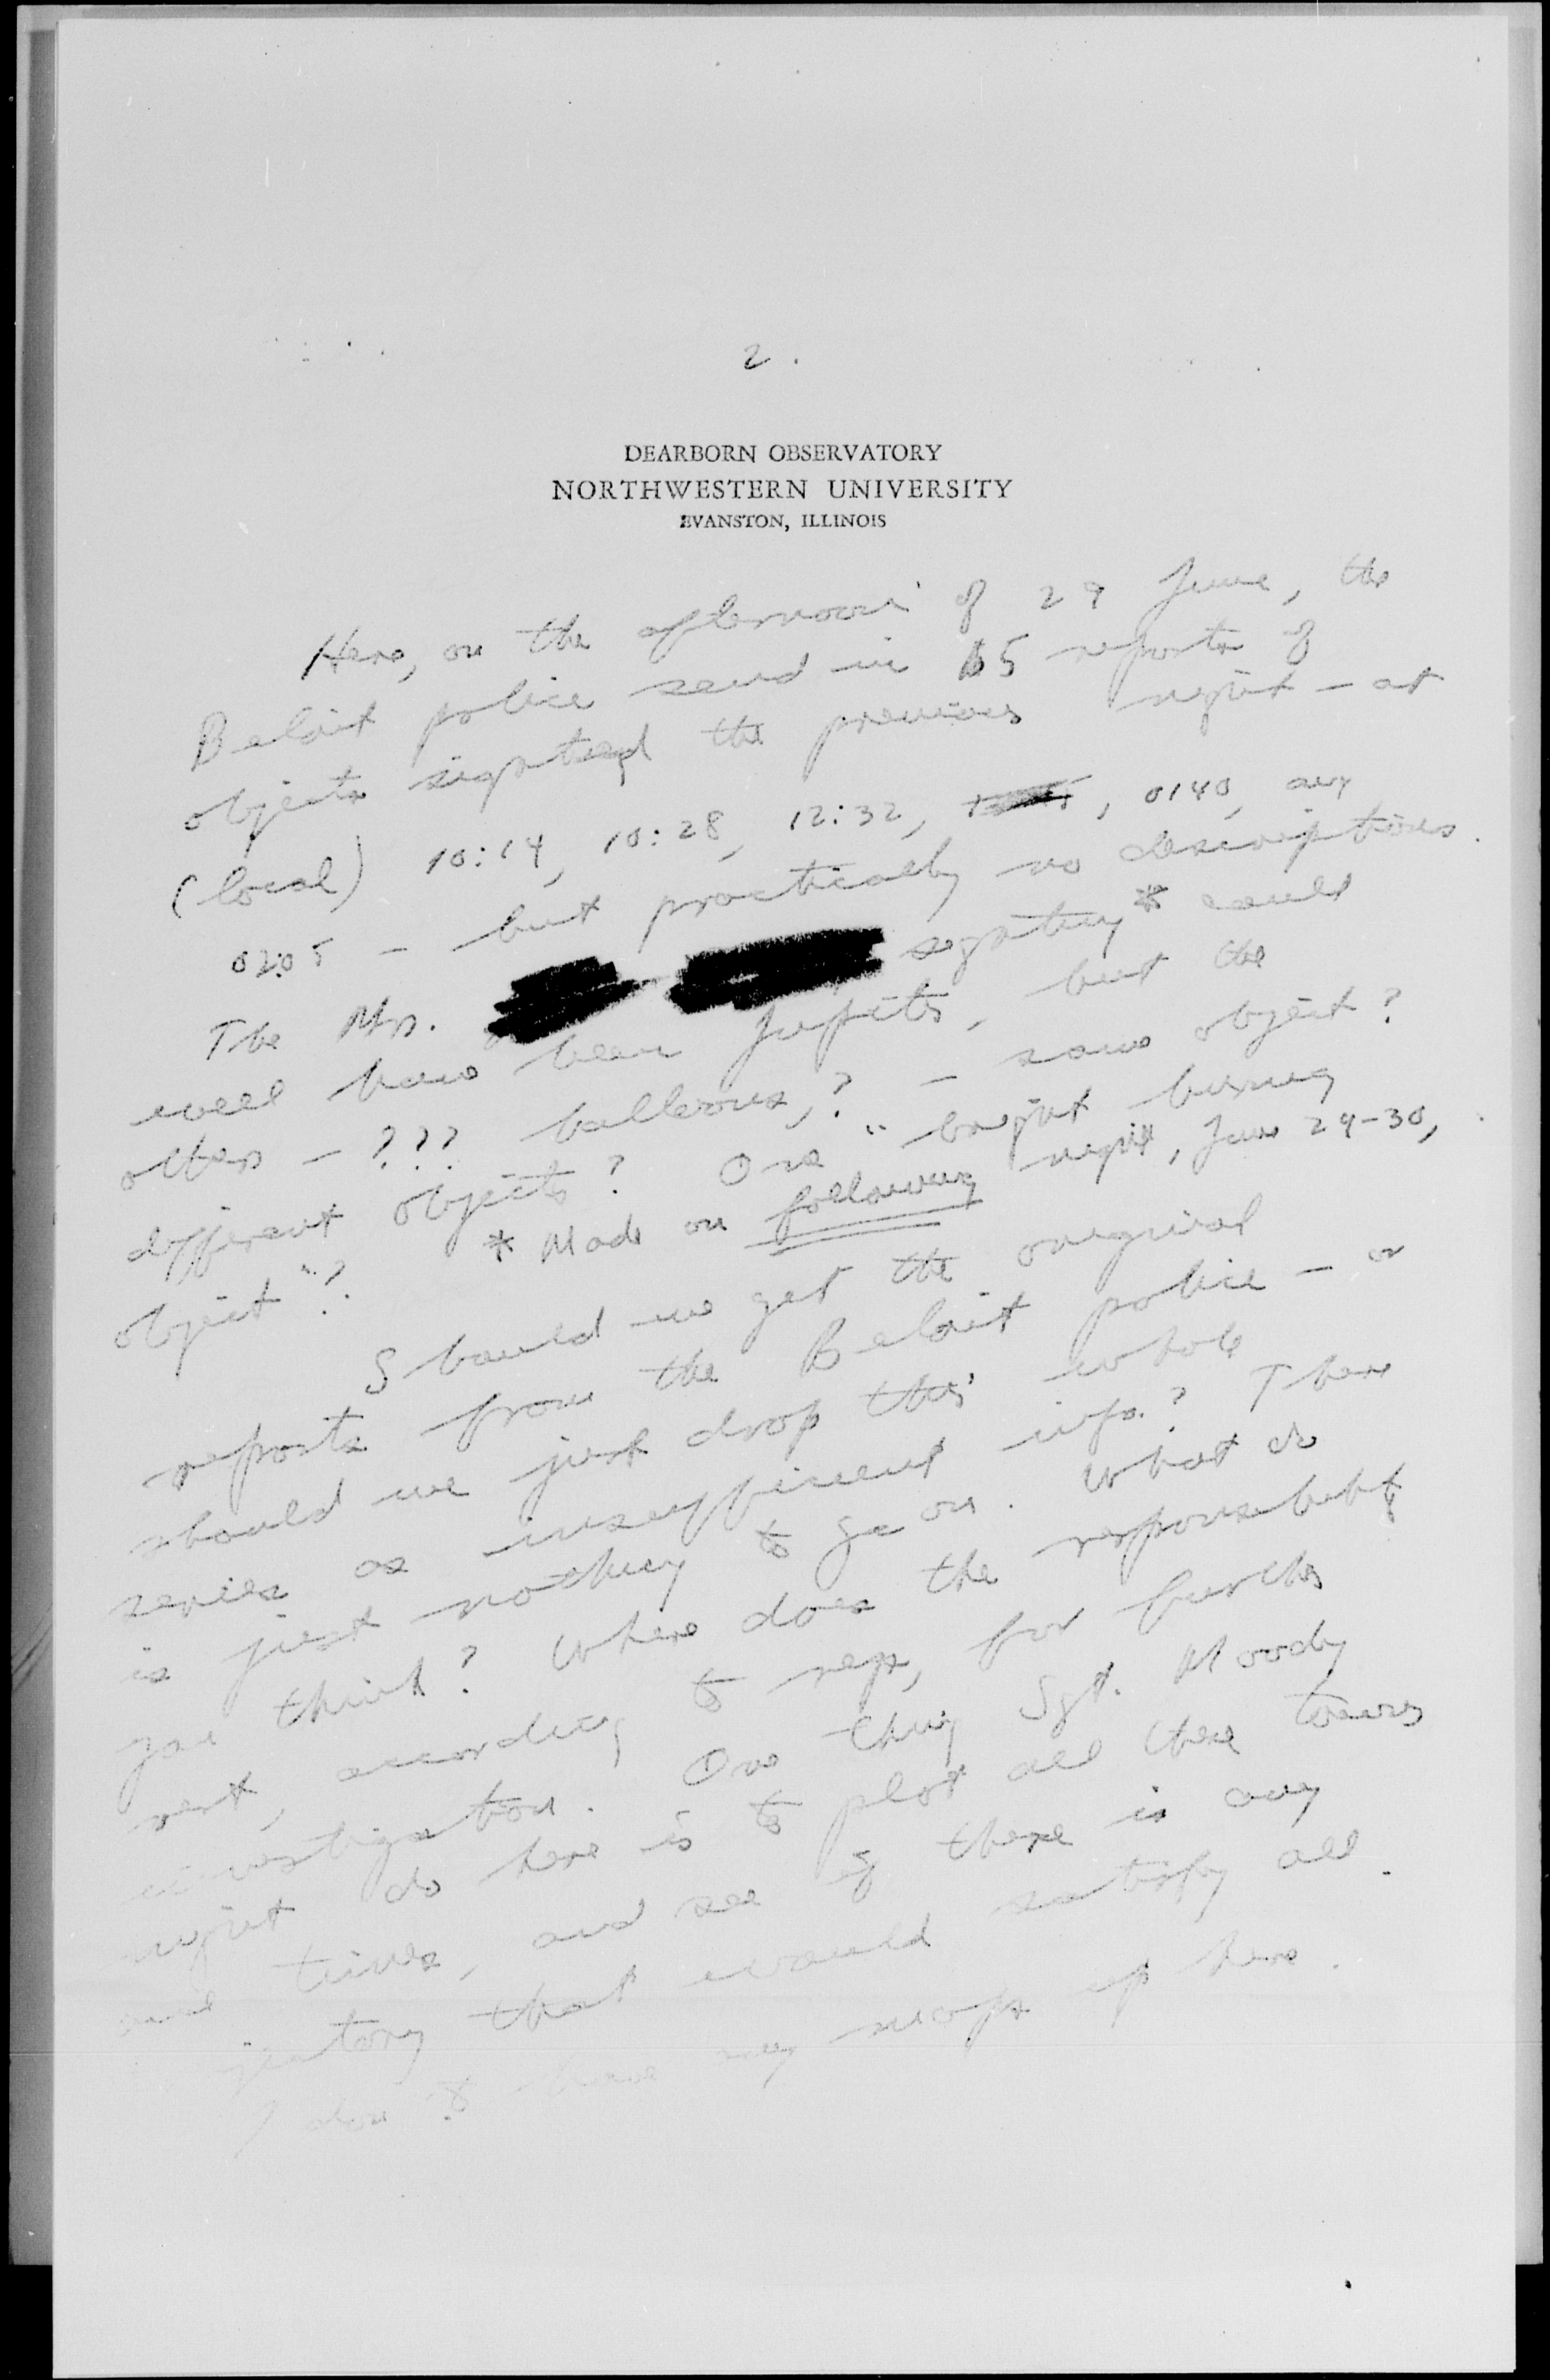 2.
DEARBORN OBSERVATORY
NORTHWESTERN UNIVERSITY
EVANSTON, ILLINOIS
Here, on the afternoon of 29 June, the
Beloit police send in 5 reports of
objects sighted the previous night – at
(local) 10:14, 10:28, 12:32, , 0140, and
0205 – but practically no descriptions.
The Mrs. sighting* could
well have been Jupiter, but the
others – ??? balloons,? – same object?
different objects? One "bright burning
object"? * Made on following night, June 29-30,
Should we get the original
reports from the Beloit police – or
should we just drop this whole
series as insufficient info.? There
is just nothing to go on. What do
you think? Where does the responsibility
rest, according to regs, for further
investigation. One thing Sgt. Moody
might do here is to plot all these towns
and times, and see if there is any
jectory that would satisfy all.
I don't have any maps up here.